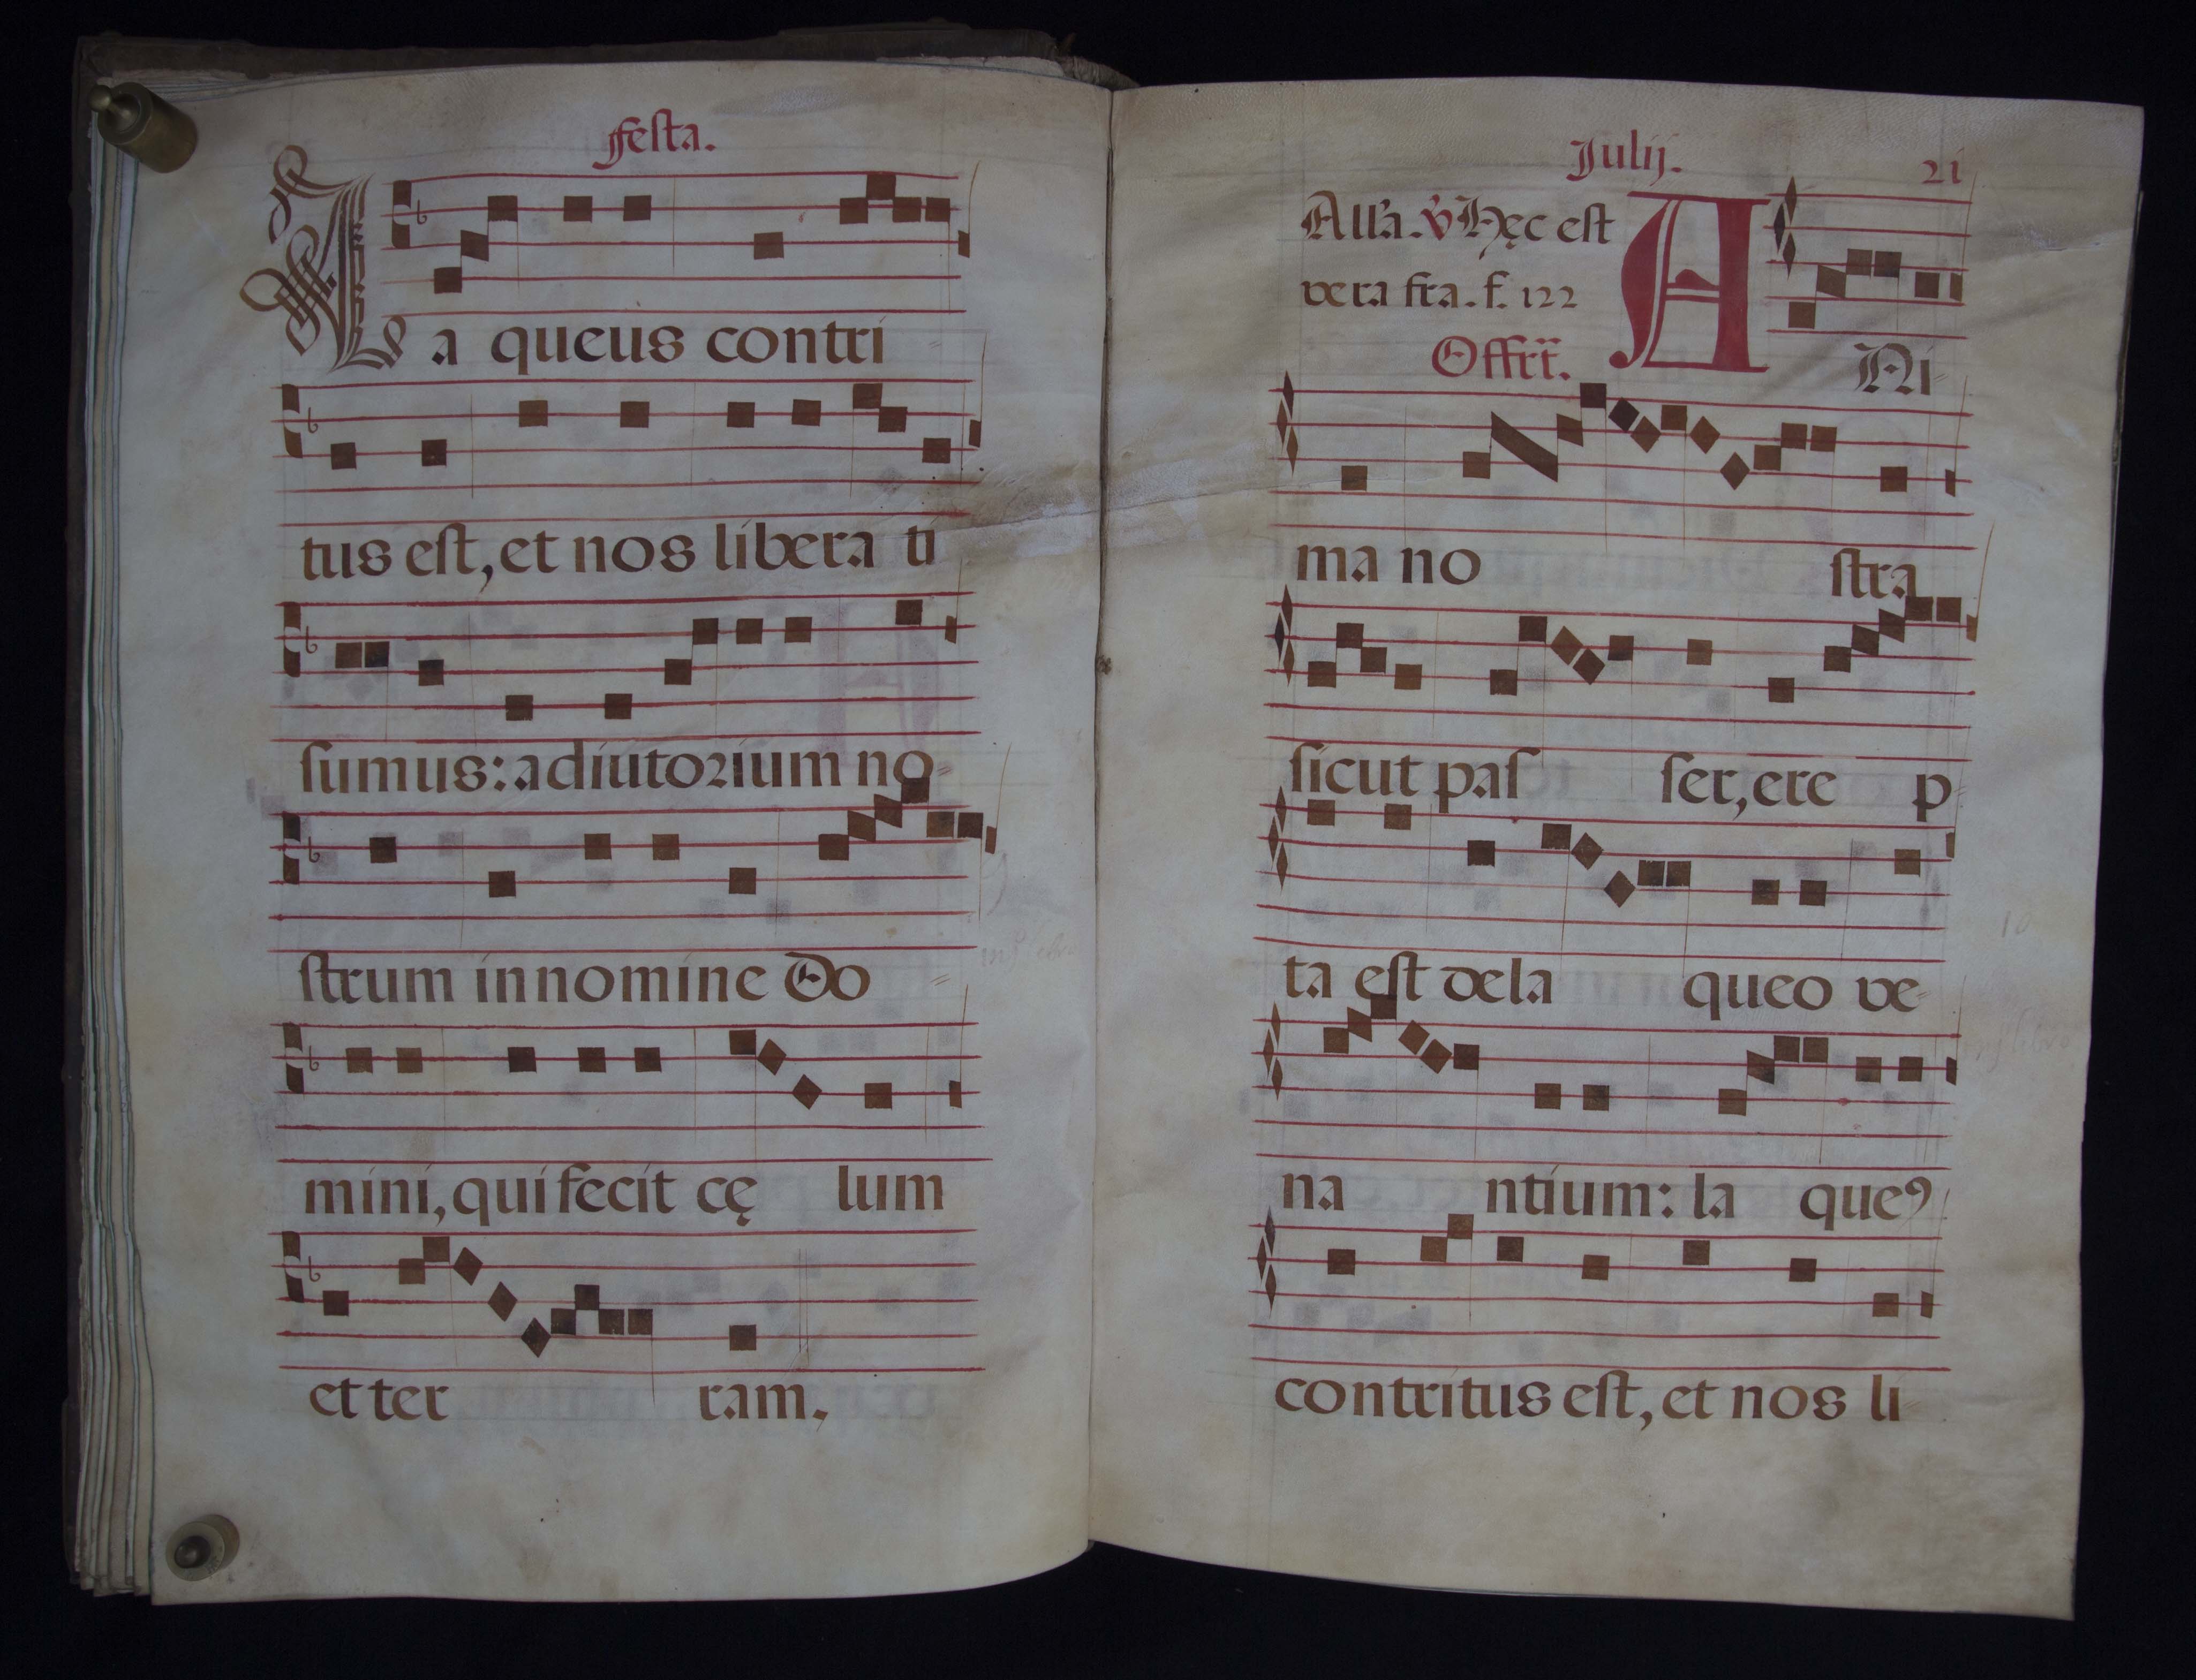 Festa.
La queus contri
tus est, et nos libera ti
sumus: adiutorium no
strum in nomine Do
mini, qui fecit cę lum
et ter ram.
Julij. 21
All'a. ℣ Hęc est
vera fra. f. 122
Offrt.
ANi
ma no stra
sicut pas ser, ere p
ta est de la queo ve
na ntium: la queꝰ
contritus est, et nos li
10